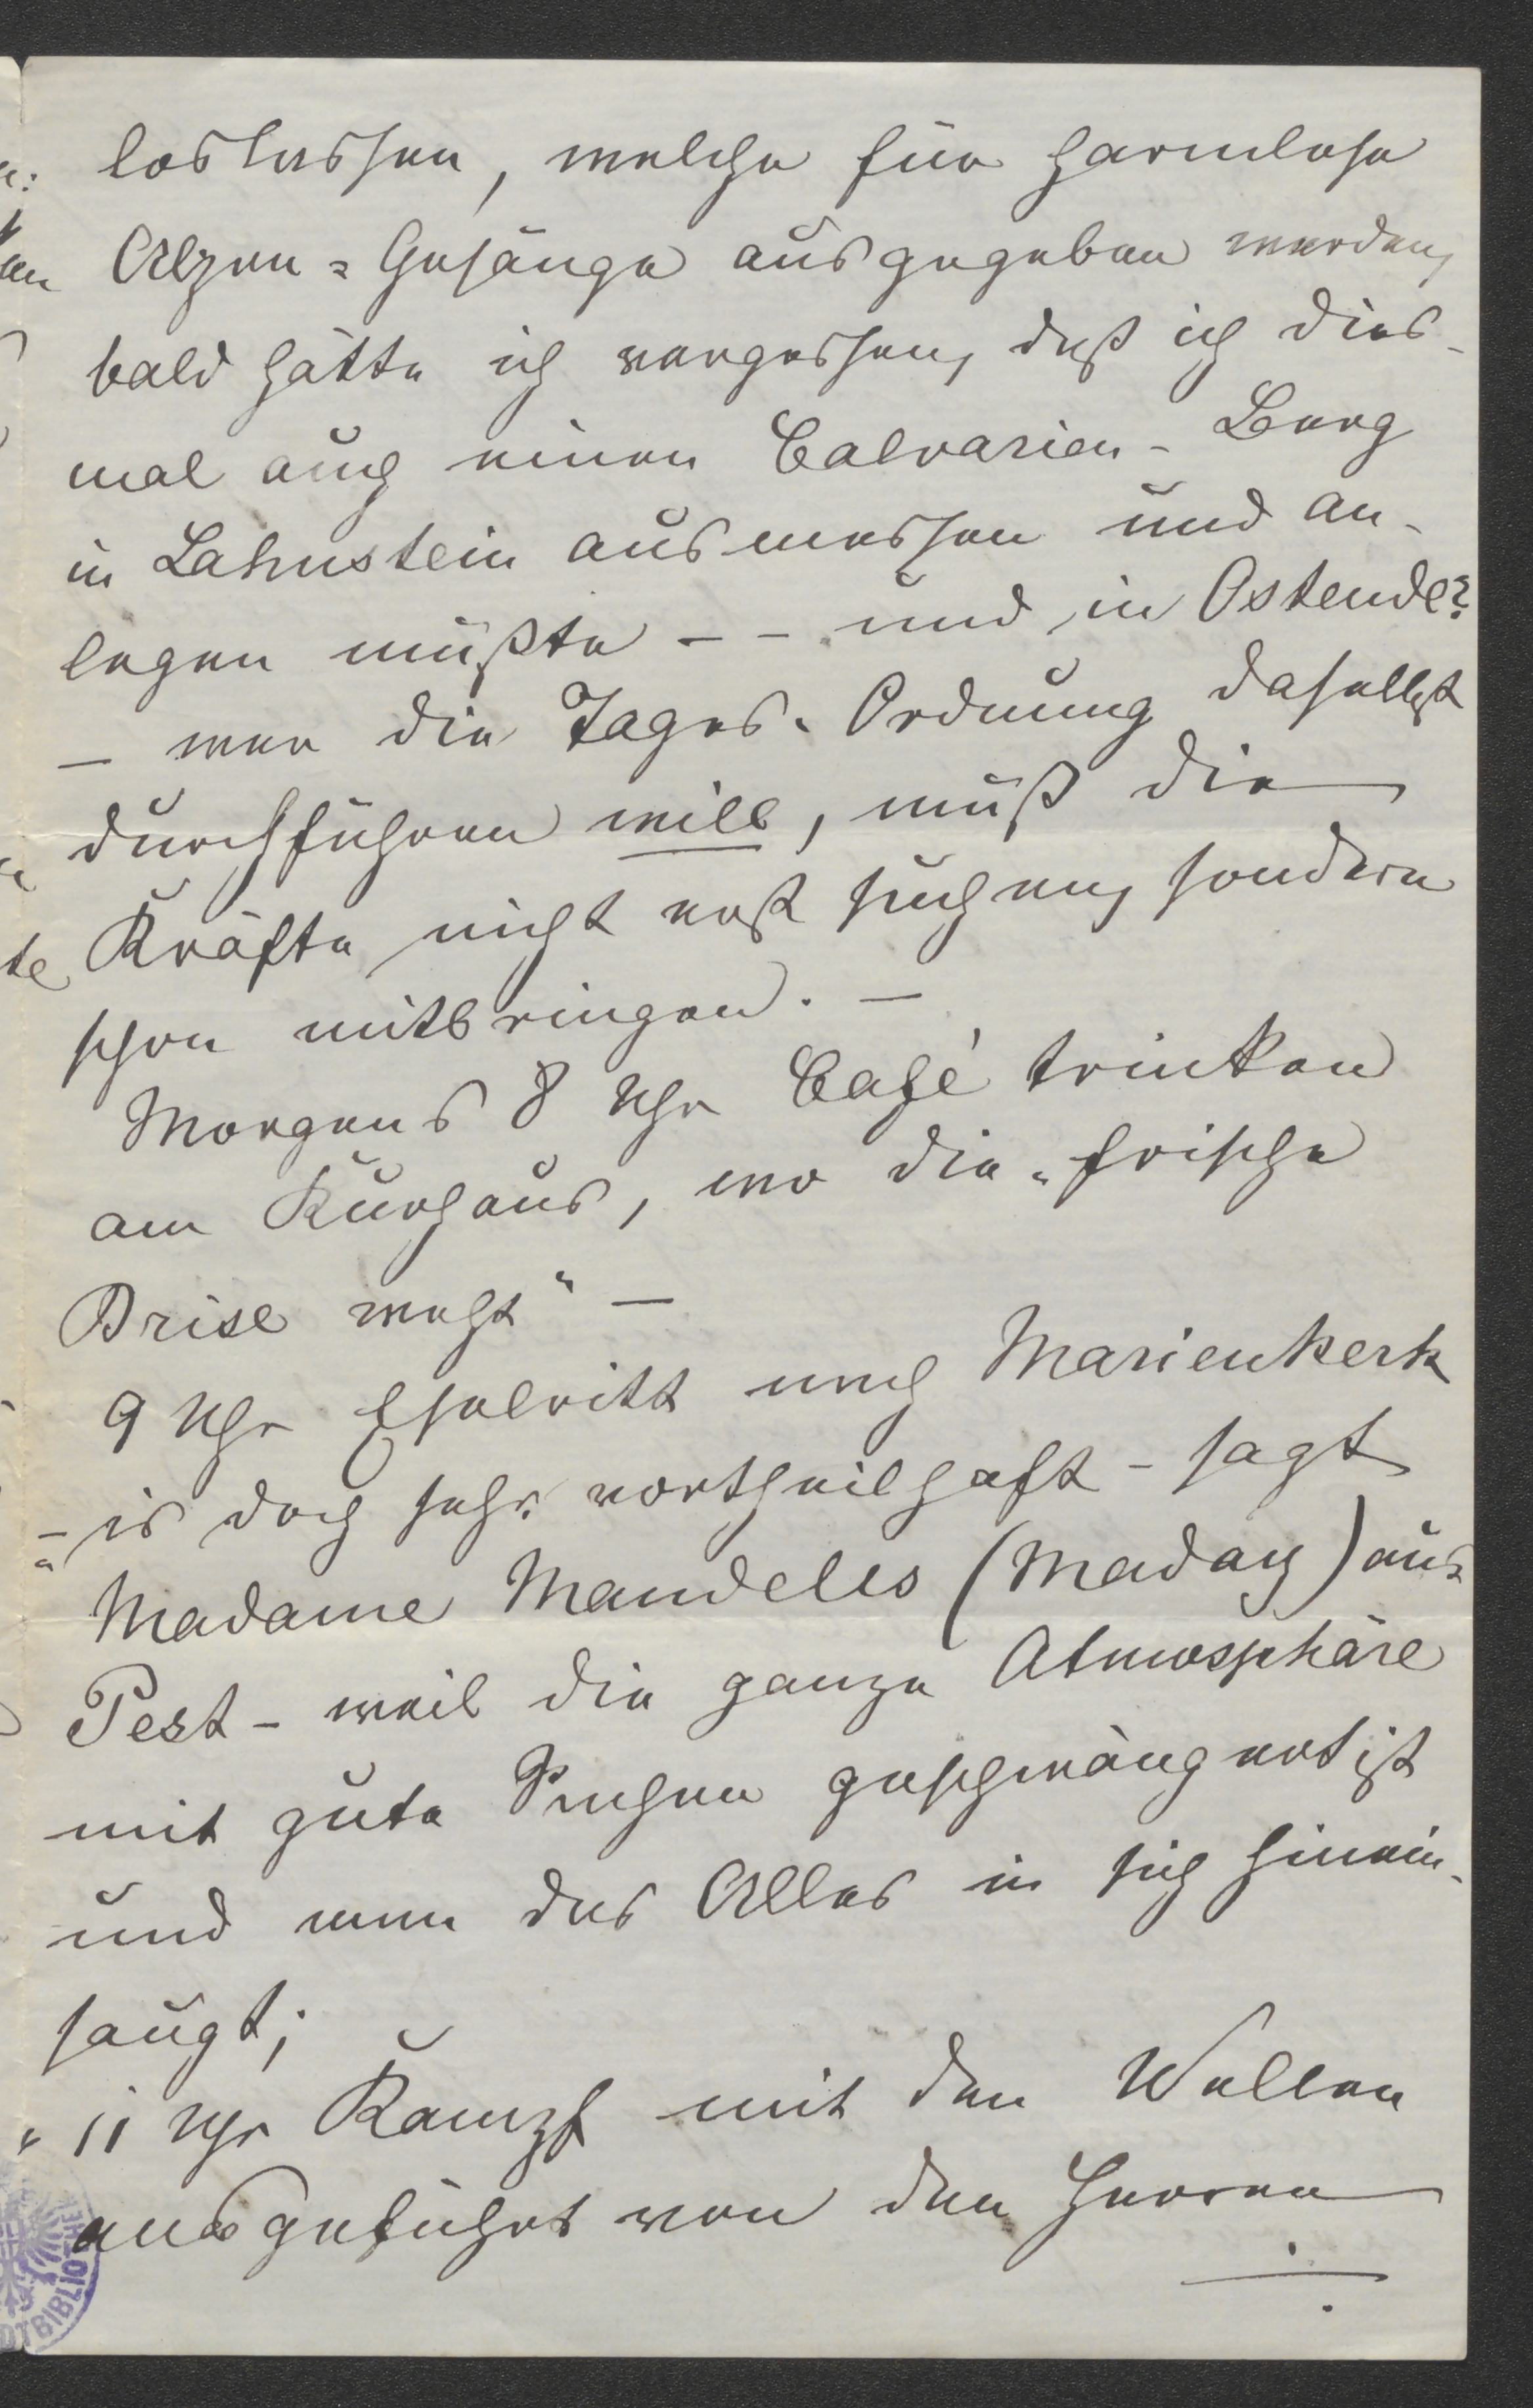 loslassen, welche für harmlose
Alpen=Gesänge ausgegeben werden,
bald hätte ich vergessen, daß ich dies-
mal auch einen Calvarien-Berg
in Lahnstein ausmessen und an-
legen müßte - - und in Ostende?
- wer die Tages-Ordnung daselbst
durchführen will, muß die
Kräfte nicht erst suchen, sondern
schon mitbringen. -
Morgens 8 Uhr Café trinken
am Kurhaus, wo die "frische
Brise weht" -
9 Uhr Eselritt nach Marienkerk
-"is doch sehr vortheilhaft - sagt
Madame Mandeles (Maday) aus
Pest - weil die ganze Atmosphäre
mit gute Sachen geschwängert ist
und man das Alles in sich hinein-
saugt;
" 11 Uhr Kampf mit den Wellen
ausgeführt von den Herren